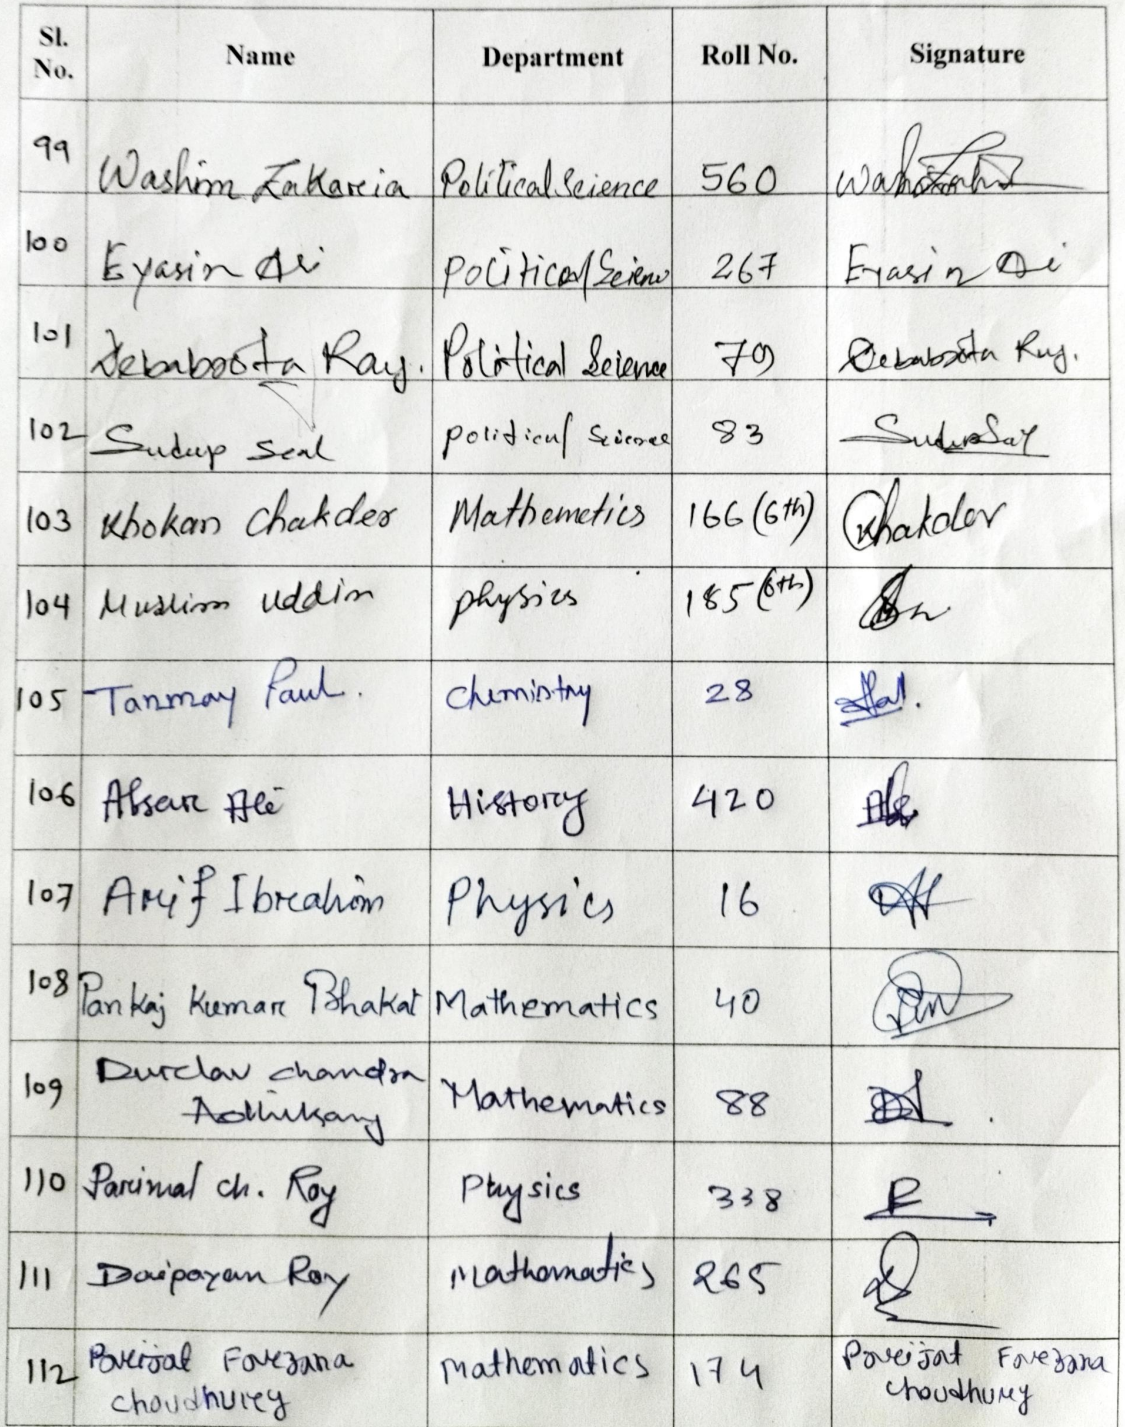 Sl. No. Name Department Roll No. Signature
99 Washim Zakaria Political Science 560
100 Eyasin Ali Political Science 267 Eyasin Ali
101 Debabrota Ray. Political Science 79 Debabrota Ray.
102 Sudup Seal political Science 83
103 Khokan Chakder Mathemetics 166 (6th) Chakder
104 Muslim Uddin physics 185 (6th)
105 Tanmay Paul. Chemistry 28
106 Absar Ali History 420
107 Arif Ibrahim Physics 16
108 Pankaj Kumar Bhakat Mathematics 40
109 Durlav chandra Mathematics 88
Adhikary
110 Parimal ch. Roy Physics 338
111 Daipayan Roy Mathematics 265
112 Parijat Farzana Mathematics 174 Parijat Farzana
choudhury choudhury